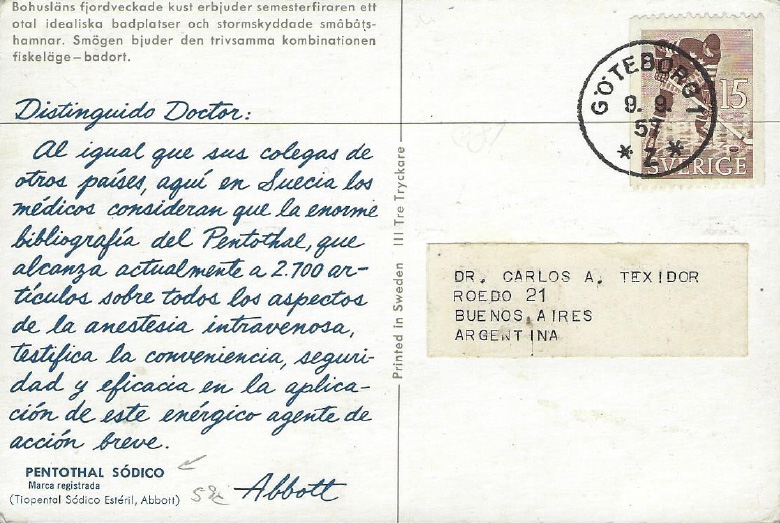 Bohusläns fjordveckade kust erbjuder semesterfiraren ett
otal idealiska badplatser och stormskyddade småbåts-
hamnar. Smögen bjuder den trivsamma kombinationen
fiskeläge – badort.
Distinguido Doctor:
Al igual que sus colegas de
otros países, aquí en Suecia los
médicos consideran que la enorme
bibliografía del Pentothal, que
alcanza actualmente a 2.700 ar-
tículos sobre todos los aspectos
de la anestesia intravenosa,
testifica la conveniencia, seguri-
dad y eficacia en la aplica-
ción de este enérgico agente de
acción breve.
PENTOTHAL SÓDICO
Marca registrada
(Tiopental Sódico Estéril, Abbott)
Abbott
Printed in Sweden III Tre Tryckare
GÖTEBORG 1
9. 9.
57
* Z *
15
SVERIGE
DR. CARLOS A. TEXIDOR
ROEDO 21
BUENOS AIRES
ARGENTINA